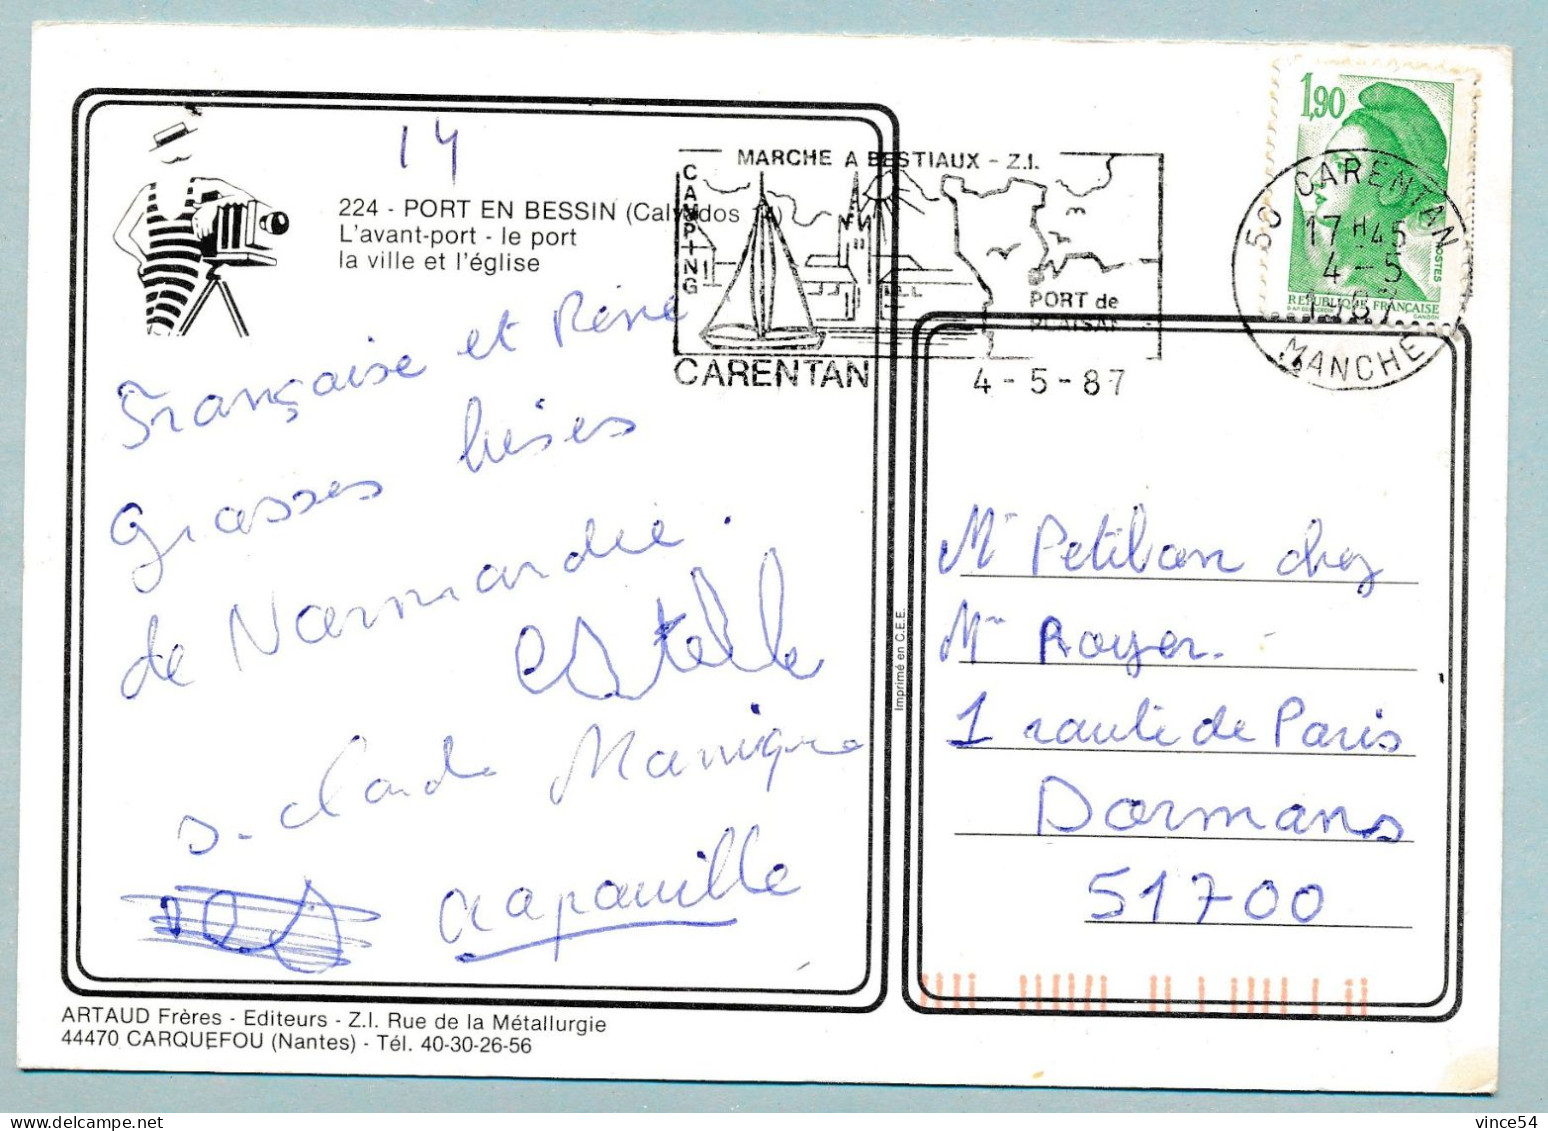 14
224 - PORT EN BESSIN (Calvados 14)
L'avant-port - le port
la ville et l'église
Française et René
grosses bises
de Normandie.
estelle
J-claude Monique
crapouille
ARTAUD Frères - Editeurs - Z.I. Rue de la Métallurgie
44470 CARQUEFOU (Nantes) - Tél. 40-30-26-56
Imprimé en C.E.E.
MARCHE A BESTIAUX - Z.I.
CAMPING
PORT de
PLAISANCE
CARENTAN
4-5-87
1,90
POSTES
REPUBLIQUE FRANÇAISE
GANDON
50 CARENTAN
17H45
4-5
1987
MANCHE
Mr Petitban chez
Mme Royer.
1 route de Paris
Dormans
51700
vince54